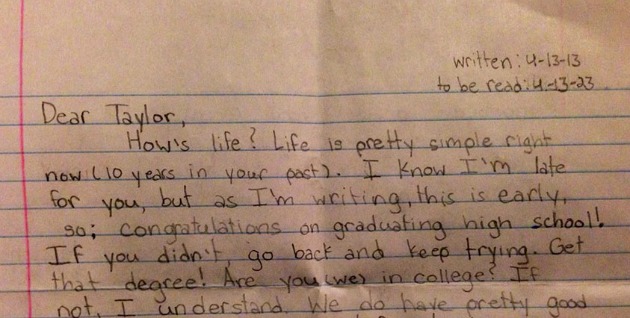 written: 4-13-13
to be read: 4-13-23
Dear Taylor,
How's life? Life is pretty simple right
now (10 years in your past). I know I'm late
for you, but as I'm writing, this is early,
so; congratulations on graduating high school!
If you didn't, go back and keep trying. Get
that degree! Are you (we) in college? If
not, I understand. We do have pretty good